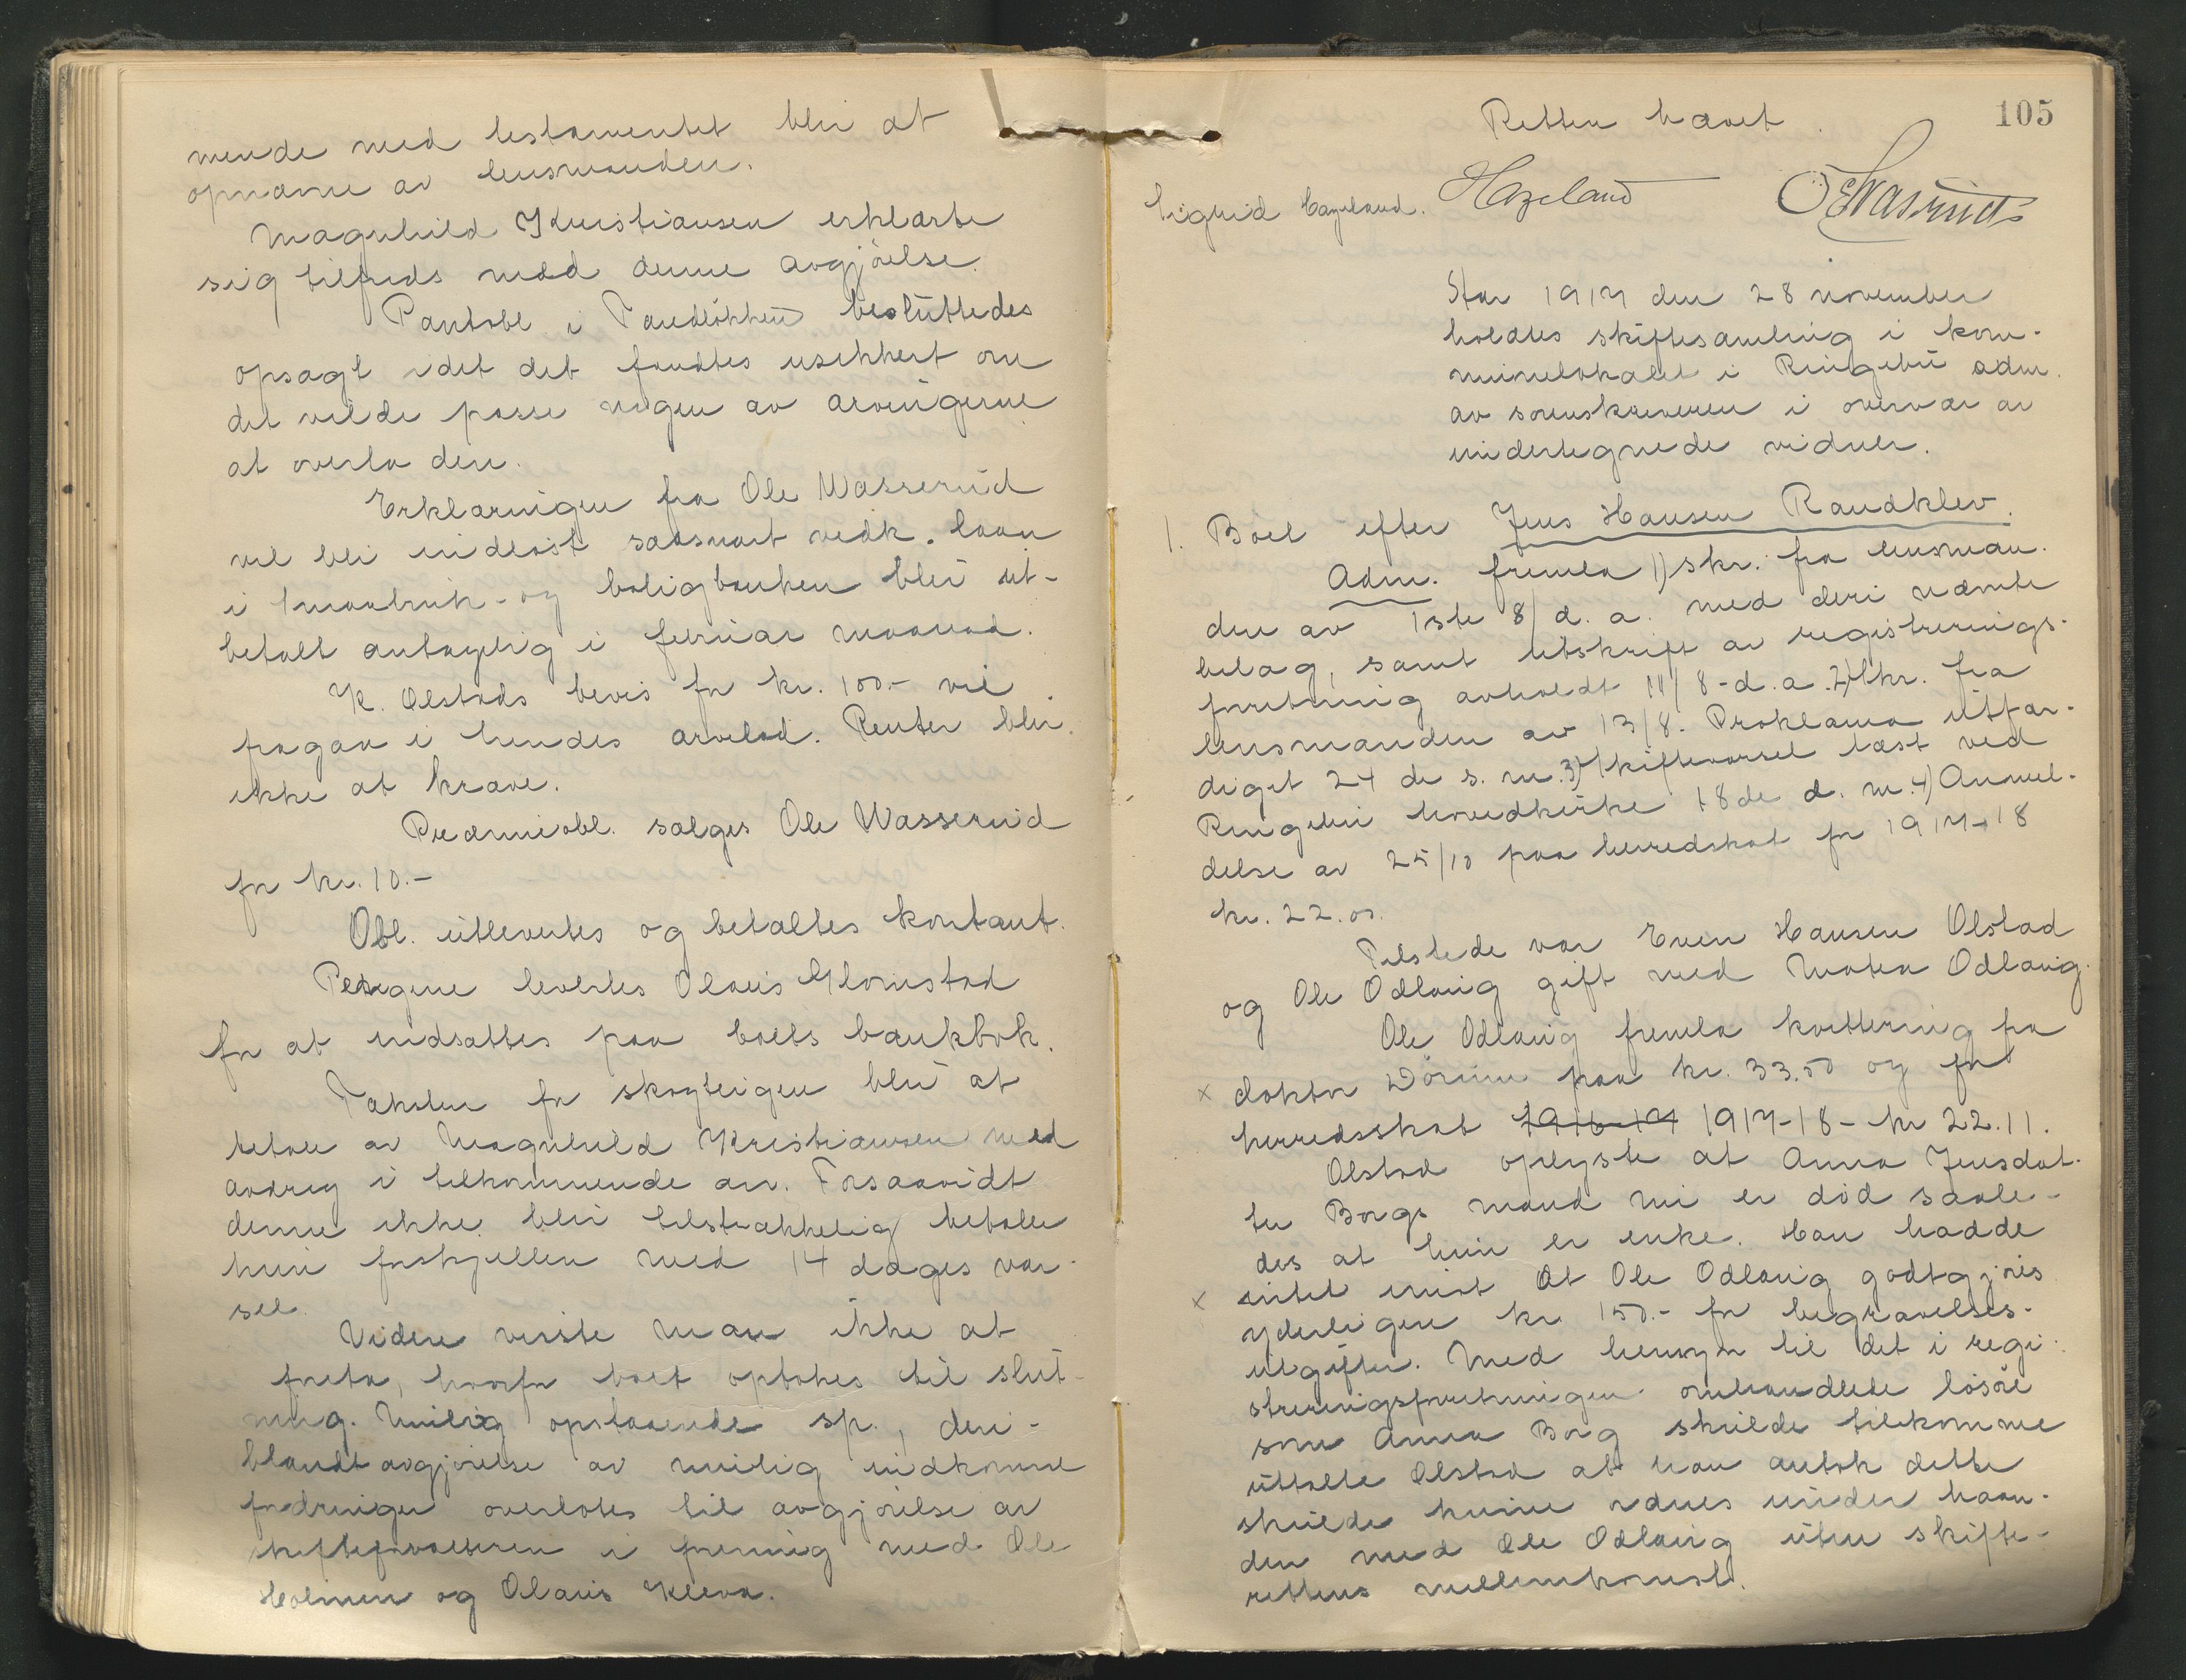 mende med testamentet blir at
opnævne av lensmanden.
Magnhild Kristiansen erklærte
sig tilfreds med denne avgjörelse.
Pantobl. i besluttedes
opsagt idet det fandtes usikkert om
det vilde passe nogen av arvingerne
at overta den.
Erklæringen fra Ole Wasserud
vil bli indlöst saasnart vedk. laan
i Smaabruk- og boligbanken blir ut-
betalt antagelig i februar maaned.
K. Olstads bevis for kr. 100.- vil
fragaa i hendes arvelod. Renter blir
ikke at kræve.
Præmieobl. sælges Ole Wasserud
for kr. 10.-
Obl. utlevertes og betaltes kontant.
Pengene levertes Olaus Glomstad
for at indsættes paa boets bankbok.
Taksten for skogteigen blir at
betale av Magnhild Kristiansen med
avdrag i tilkommende arv. Forsaavidt
denne ikke blir tilstrækkelig betaler
hun forskjellen med 14 dages var-
sel.
Videre visste man ikke at
foreta, hvorfor boet optokes til slut-
ning. Mulig opstaaende sp., deri-
blandt avgjörelse av mulig indkomne
fordringer overlates til avgjörelse av
skifteforvalteren i forening med Ole
Holmen og Olaus Kleva.
105
Retten hævet.
Sigrid Hazeland. Hazeland O E Wasrud
Aar 1917 den 28 november
holdtes skiftesamling i kom-
munelokalet i Ringebu adm.
av sorenskriveren i overvær av
undertegnede vidner.
1. Boet efter Jens Hansen Randklev.
Adm. fremla 1) skr. fra lensman-
den av 1ste 8/ d. a. med deri nævnte
bilag, samt utskrift av registrerings-
forretning avholdt 11/8-d.a. 2) Skr. fra
lensmanden av 13/8. Proklama utfær-
diget 24 de s. m. 3) Skiftevarsel læst ved
Ringebu hovedkirke 18de d. m. 4) Anmel-
delse av 25/10 paa herredskat for 1917-18
kr. 22.00.
Tilstede var Even Hansen Olstad
og Ole Odlaug gift med Odlaug.
Ole Odlaug fremla kvittering fra
x doktor paa kr. 33.50 og for
herredsskat 1916-17 1917-18 - kr 22.11.
Olstad oplyste at Anna Jensdat-
ter Borgs mand nu er död saale-
des at hun er enke. Han hadde
x intet imot at Ole Odlaug godtgjöres
yderligere kr 150.- for begravelses-
utgifter. Med hensyn til det i regi-
streringsforretningen omhandlede lösöre
som Anna Borg skulde tilkomme
uttalte Olstad at han antok dette
skulde kunne ordnes under haan-
den med Ole Odlaug uten skifte-
rettens mellemkomst.